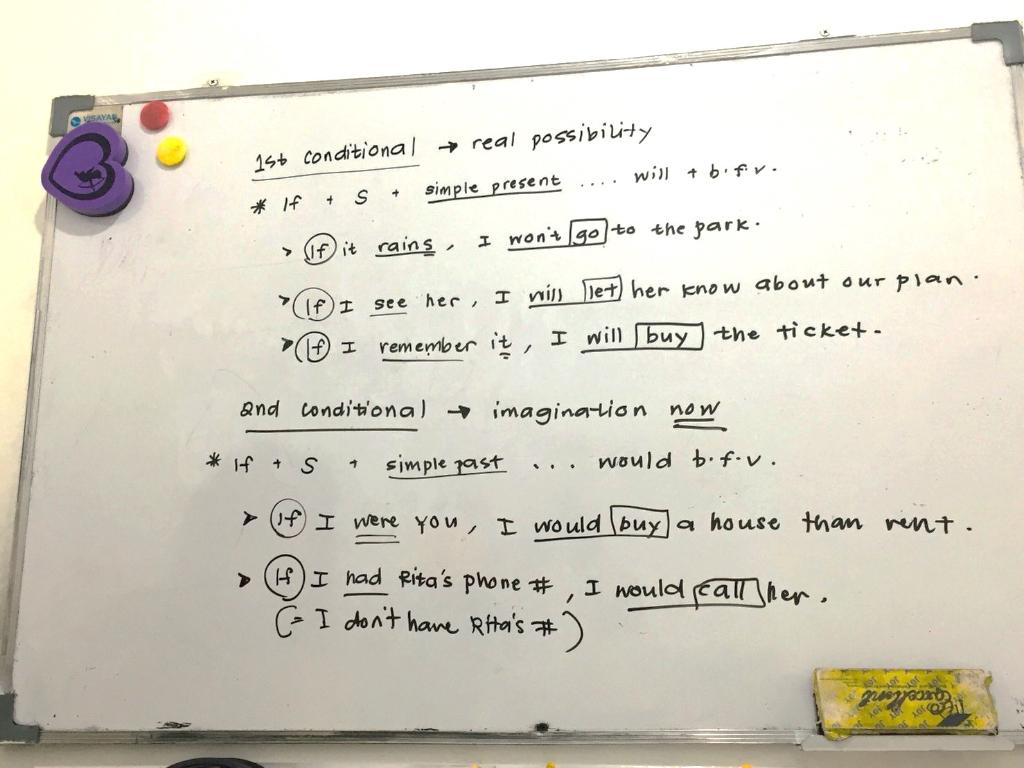 VISAYAS
1st conditional → real possibility
* If + S + simple present .... will + b.f.v.
> If it rains, I won't go to the park.
> If I see her, I will let her know about our plan.
> If I remember it, I will buy the ticket.
2nd conditional → imagination now
* If + S + simple past ... would b.f.v.
> If I were you, I would buy a house than rent.
> If I had Rita's phone #, I would call her.
(= I don't have Rita's #)